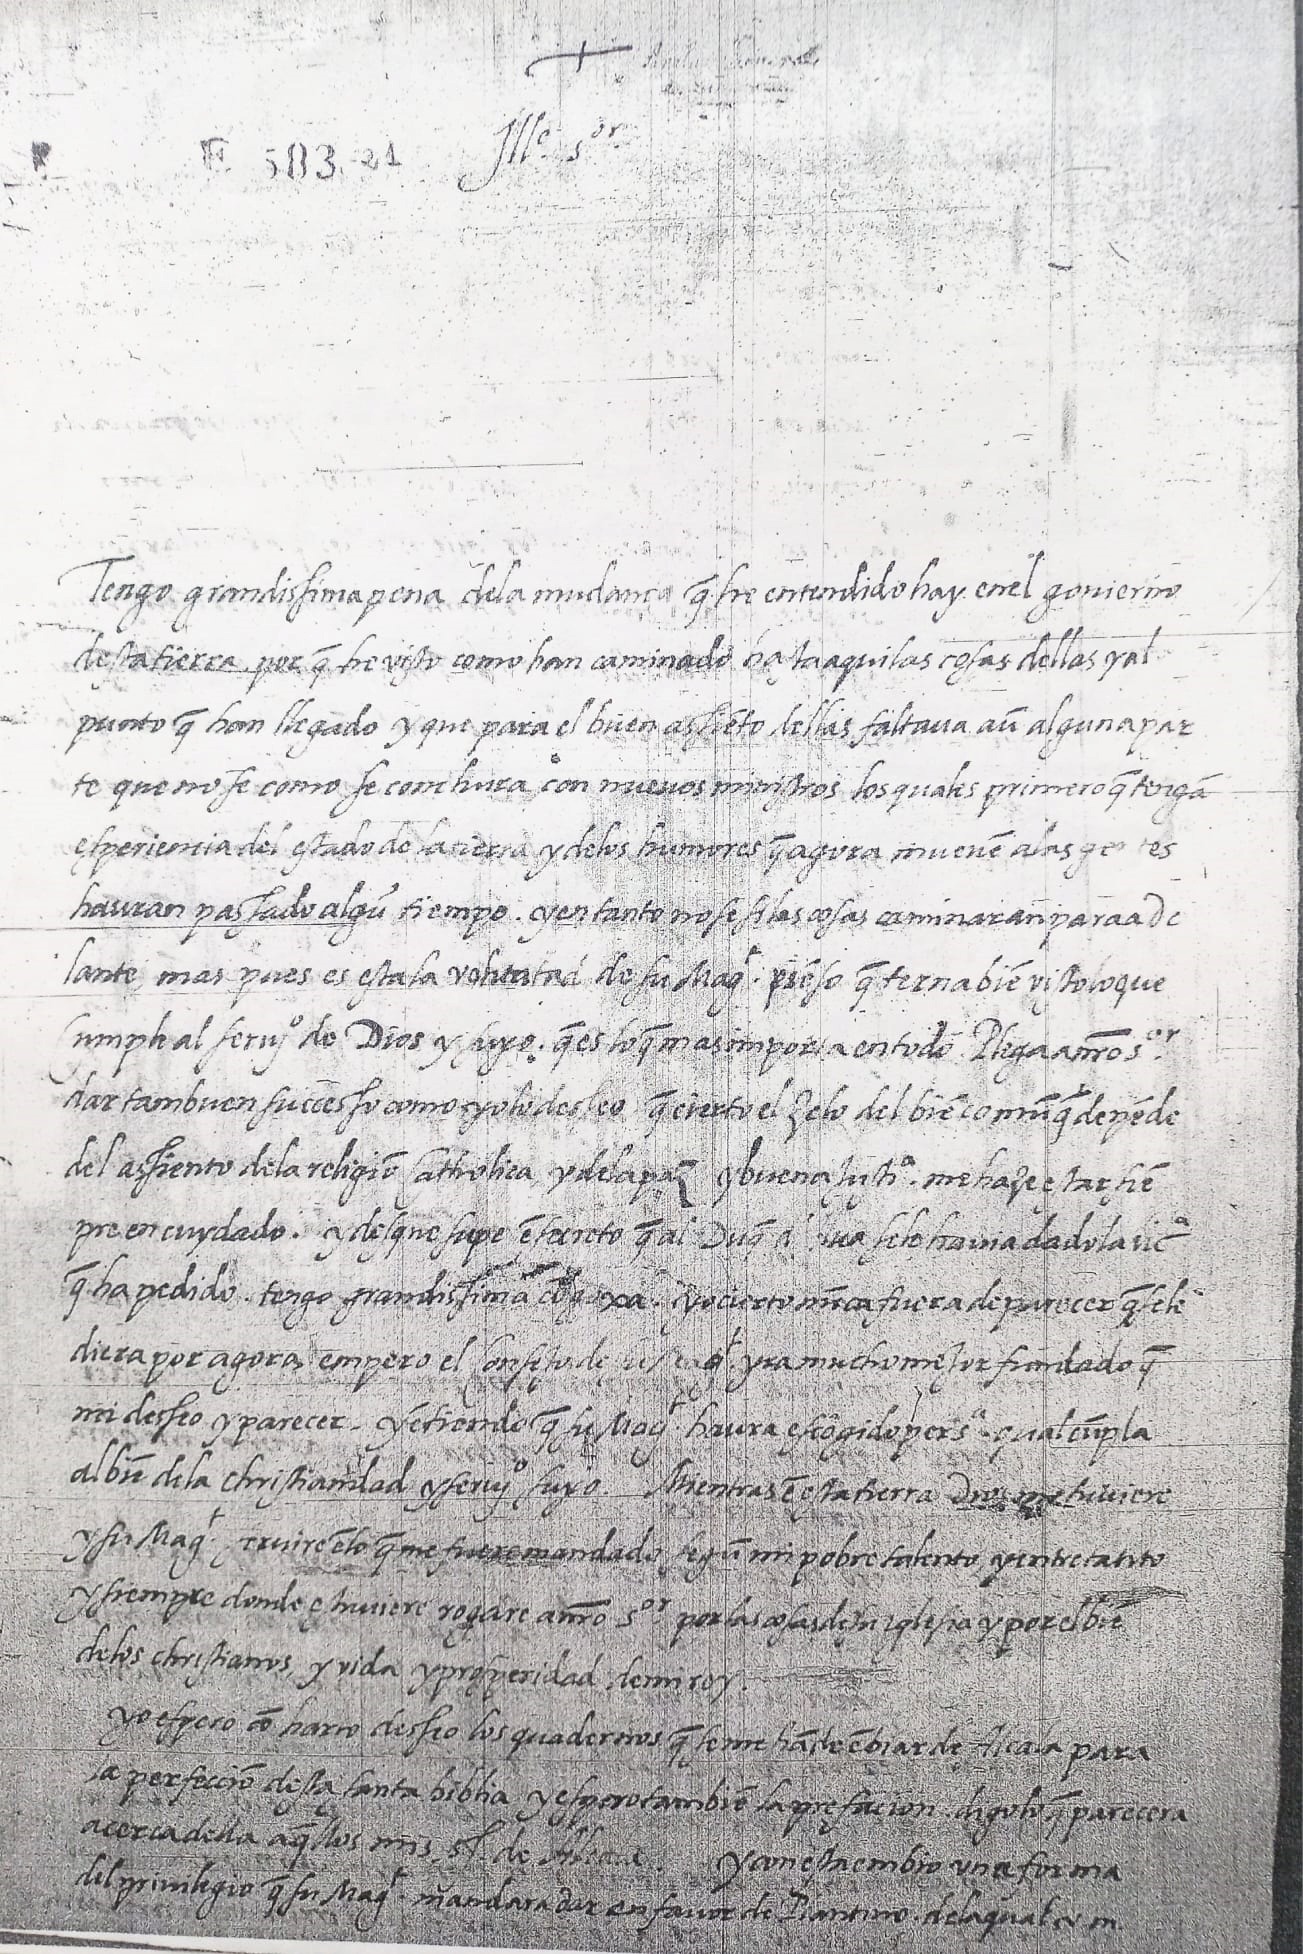 Ille. sor
583-21
Tengo grandissima pena dela mudança q̄ he entendido hay enel govierno
desta tierra por q̄ he visto como han caminado hasta aqui las cosas dellas y al
punto q̄ han llegado y que para el buen assiēto dellas faltava aū alguna par
te que no se como se concluira con nuevos ministros los quales primero q̄ tengā
esperiencia del estado de la tierra y delos humores q̄ agora muevē alas gentes
havran passado algū tiempo. y entanto no se si las cosas caminaran para ade
lante, mas pues es esta la voluntad de su Magt. piēso q̄ terna biē visto lo que
cumple al seruio de Dios y suyo. q̄ es lo q̄ mas importa en todo. Plega a nr̄o sor
dar tam buen successo como yo lo desseo q̄ cierto el zelo del biē comū q̄ depēde
del assiento dela religiō catholica, y dela paz y buena justia. me haze estar siē
pre en cuydado. y desque supe ē secreto q̄ al Duq̄ se le havia dado la lica
q̄ ha pedido. tengo grandissima cōgoxa. yo cierto nūca fuera de parecer q̄ se le
diera por agora, empero el consejo de su Magt. yra mucho mejor fundado q̄
mi desseo y parecer. y ētiendo q̄ su Magt. havra escōgido persa. qual cūpla
al biē dela christiandad y seruio suyo. Mientras ē esta tierra Dios me tuviere
y su Magt. serviré ē lo q̄ me fuere mandado, segū mi pobre talento, y entretanto
y siempre donde estuviere rogare a nr̄o sor por las cosas de su iglesia y por el biē
delos christianos, y vida y prosperidad de mi rey.
yo espero cō harto desseo los quadernos q̄ se me hā de ēbiar de Alcala para
la perfecciō desta santa biblia y espero tambiē la prefacion. digo lo q̄ parecera
acerca della a aq̄llos mis. ss. de Alcala. y con esta embio una forma
del privilegio q̄ su Magt. mandara dar en favor de Plantino. dela qual v. m.